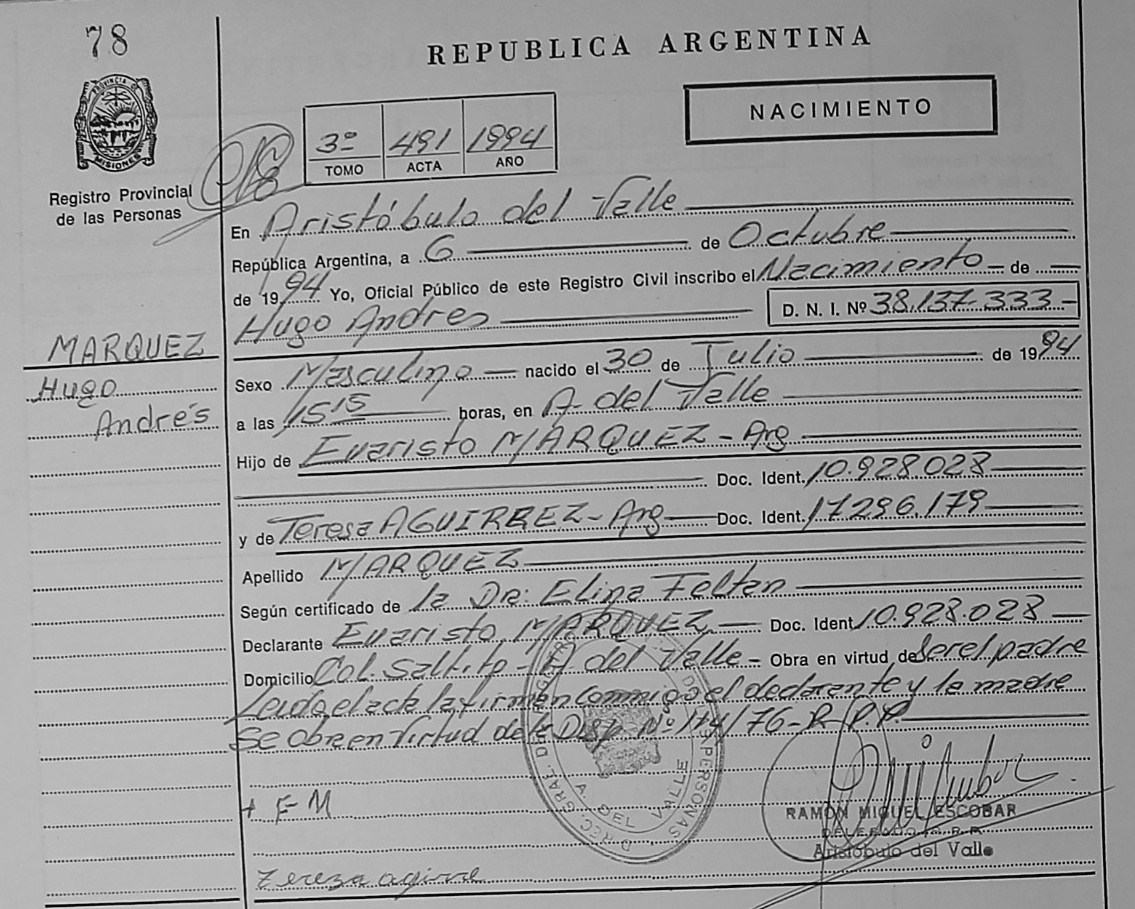 78
REPUBLICA ARGENTINA
NACIMIENTO
PROVINCIA D
MISIONES
Registro Provincial
de las Personas
3º 491 1994
TOMO ACTA AÑO
En Aristóbulo del Valle
República Argentina, a 6 de Octubre
de 1994 Yo, Oficial Público de este Registro Civil inscribo el Nacimiento de
Hugo Andres D. N. I. Nº 38.137.333
MARQUEZ
Hugo
Andrés
Sexo Masculino nacido el 30 de Julio de 1994
a las 1515 horas, en A. del Valle
Hijo de Evaristo MARQUEZ - Arg
Doc. Ident. 10.928.028
y de Teresa AGUIRREZ - Arg Doc. Ident. 17296.179
Apellido MARQUEZ
Según certificado de la Dr: Elina Feltan
Declarante Evaristo MARQUEZ Doc. Ident 10.928.028
Domicilio Col. Saltito - A del Valle - Obra en virtud de ser el padre
Leida el acta la firman conmigo el declarante y la madre
Se obra en virtud de la Disp. Nº 174/76 - R.P.P.
D REC. GRAL. DEL REGISTRO DE LAS PERSONAS
A. DEL VALLE
+ E-M
RAMON MIGUEL ESCOBAR
DELEGADO R.P.P.
Aristóbulo del Valle
Zereza agirre